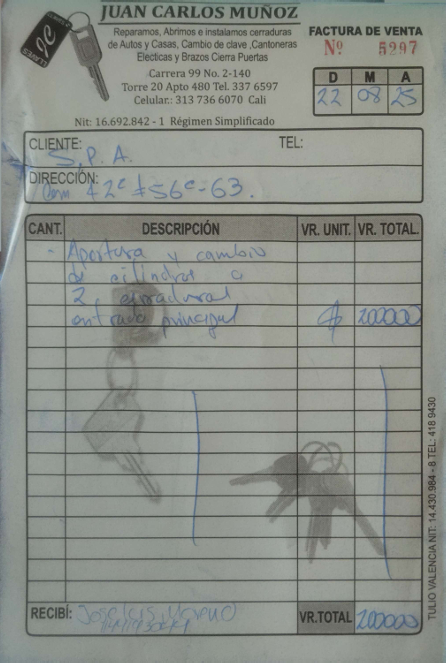 JUAN CARLOS MUÑOZ
Reparamos, Abrimos e instalamos cerraduras
de Autos y Casas, Cambio de clave ,Cantoneras
Electicas y Brazos Cierra Puertas
Carrera 99 No. 2-140
Torre 20 Apto 480 Tel. 337 6597
Celular.: 313 736 6070 Cali
Nit: 16.692.842 - 1 Régimen Simplificado
FACTURA DE VENTA
Nº 5297
D M A
22 08 25
CLIENTE: S.P.A. TEL:
DIRECCIÓN: 42c #56c-63.
CANT. DESCRIPCIÓN VR. UNIT. VR. TOTAL.
- Apertura y cambio
de cilindros a
2
entrada principal $ 200000
RECIBÍ: VR.TOTAL 200000
TULIO VALENCIA NIT: 14.430.984 - 8 TEL: 418 9430